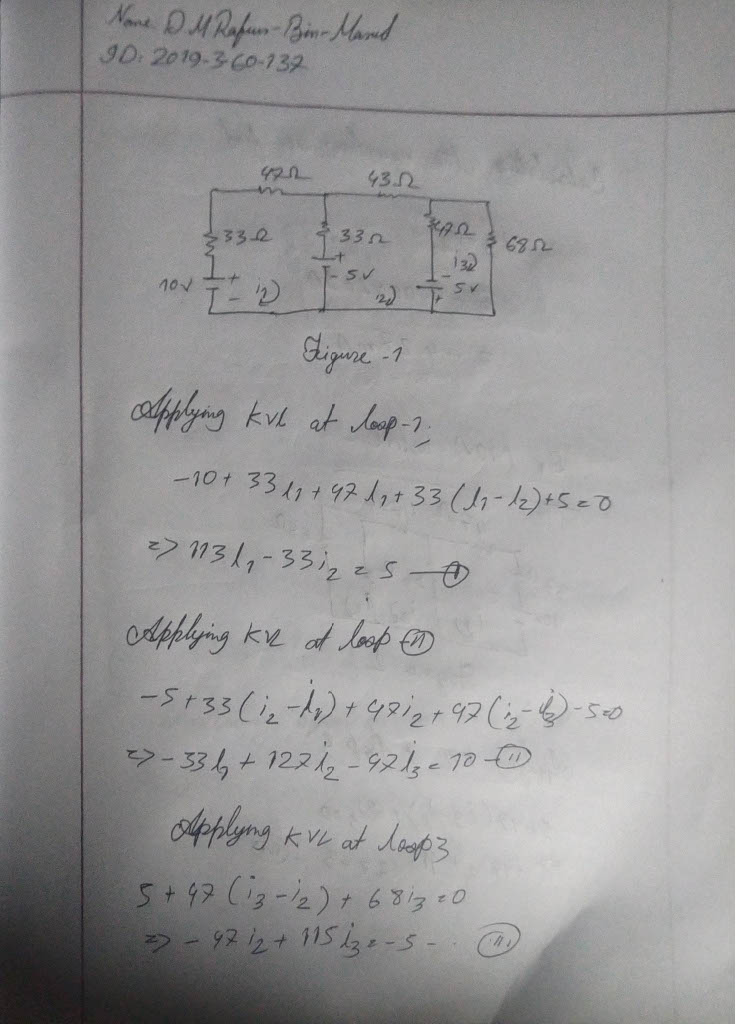 Name: D M Rafiun-Bin-Masud
ID: 2019-3-60-137
47Ω 43Ω
33Ω 33Ω 47Ω 68Ω
10V + - i2) + - 5V i2) i3) - 5V +
Figure-1
Applying KVL at loop-1,
-10 + 33i1 + 47i1 + 33(i1-i2)+5=0
=> 113i1 - 33i2 = 5 - (I)
Applying KVL at loop (II)
-5+33(i2-i1) + 47i2 + 47(i2-i3)-5=0
=> -33i1 + 127i2 - 47i3 = 10 - (II)
Applying KVL at loop3
5 + 47(i3-i2) + 68i3=0
=> -47i2 + 115i3 = -5 - .. (III)